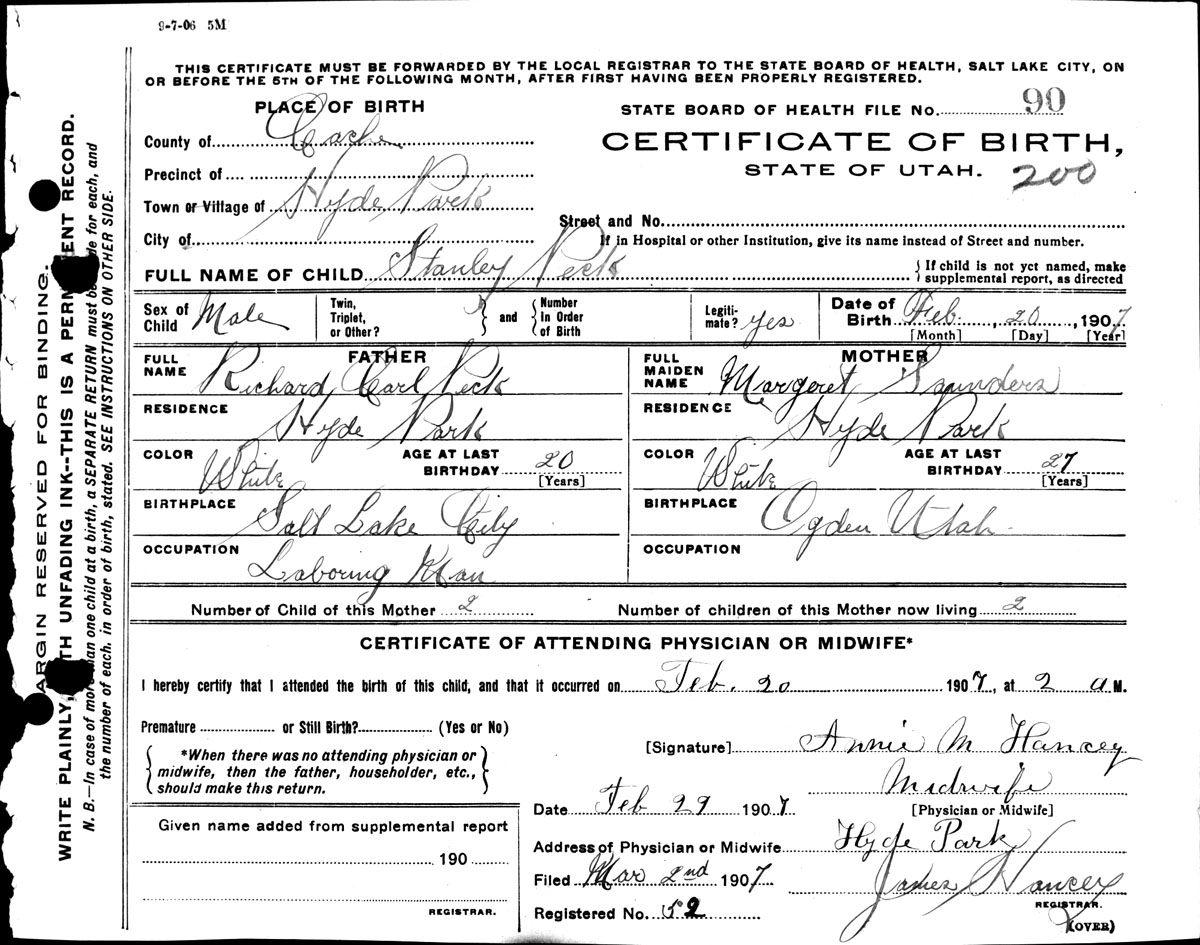 9-7-06 5M
THIS CERTIFICATE MUST BE FORWARDED BY THE LOCAL REGISTRAR TO THE STATE BOARD OF HEALTH, SALT LAKE CITY, ON
OR BEFORE THE 5TH OF THE FOLLOWING MONTH, AFTER FIRST HAVING BEEN PROPERLY REGISTERED.
PLACE OF BIRTH
STATE BOARD OF HEALTH FILE No. 90
County of Cache
CERTIFICATE OF BIRTH,
STATE OF UTAH.
200
Precinct of
Town or Village of Hyde Park
Street and No.
City of
If in Hospital or other Institution, give its name instead of Street and number.
FULL NAME OF CHILD Stanley Peck
{ If child is not yet named, make
supplemental report, as directed
Sex of Child Male
Twin, Triplet, or Other? } and { Number In Order of Birth
Legiti-mate? yes
Date of Birth Feb. 20, 1907
[Month] [Day] [Year]
FATHER
FULL NAME Richard Carl Peck
RESIDENCE Hyde Park
COLOR White
AGE AT LAST BIRTHDAY 20
[Years]
BIRTHPLACE Salt Lake City
OCCUPATION Laboring Man
MOTHER
FULL MAIDEN NAME Margeret Saunders
RESIDENCE Hyde Park
COLOR White
AGE AT LAST BIRTHDAY 27
[Years]
BIRTHPLACE Ogden Utah
OCCUPATION
Number of Child of this Mother 2
Number of children of this Mother now living 2
CERTIFICATE OF ATTENDING PHYSICIAN OR MIDWIFE*
I hereby certify that I attended the birth of this child, and that it occurred on Feb. 20 1907, at 2 a M.
Premature or Still Birth? (Yes or No)
{ *When there was no attending physician or
midwife, then the father, householder, etc.,
should make this return. }
[Signature] Annie M Hancey
Midwife
[Physician or Midwife]
Date Feb 29 1907
Address of Physician or Midwife Hyde Park
Filed Mar 2nd 1907
James Hancey
REGISTRAR.
Registered No. 52
(OVER)
Given name added from supplemental report
190
REGISTRAR.
ARGIN RESERVED FOR BINDING.
WRITE PLAINLY, TH UNFADING INK--THIS IS A PERM ENT RECORD.
N. B.—In case of more than one child at a birth, a SEPARATE RETURN must be de for each, and
the number of each, in order of birth, stated. SEE INSTRUCTIONS ON OTHER SIDE.